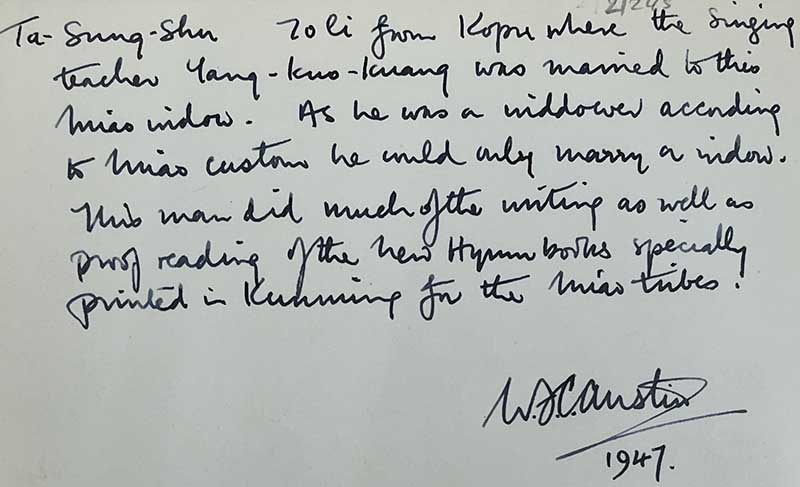 21243
Ta-Sung-Shu 70 li from Kopu where the singing
teacher Yang-Kuo-Kuang was married to this
Miao widow. As he was a widdower according
to Miao custom he could only marry a widow.
This man did much of the writing as well as
proof reading of the new Hymn books specially
printed in Kunming for the Miao tribes.
Austin
1947.